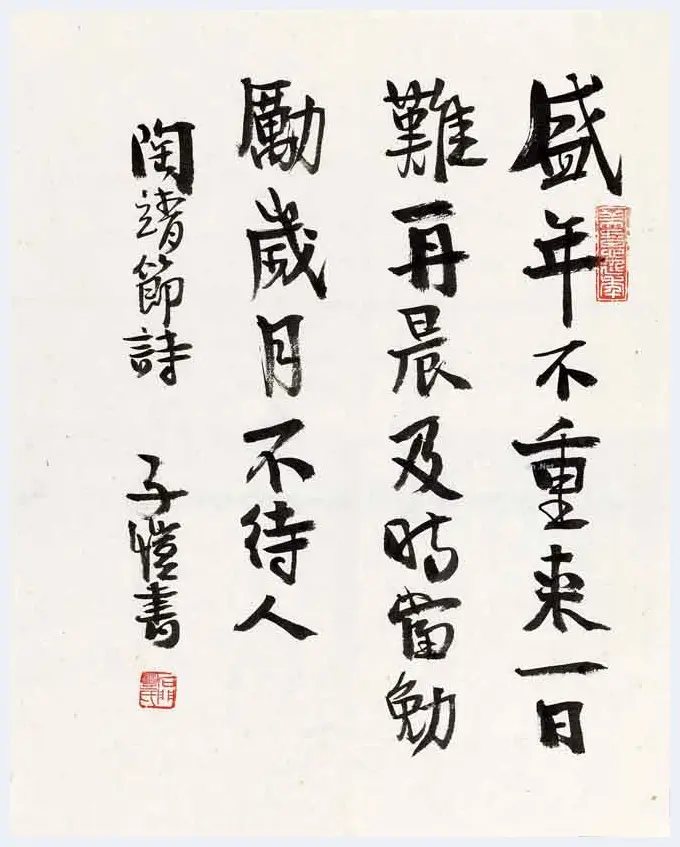 盛年不重来一日
難再晨及時當勉
勵歲月不待人
陶靖節詩 子愷書
石門豐氏